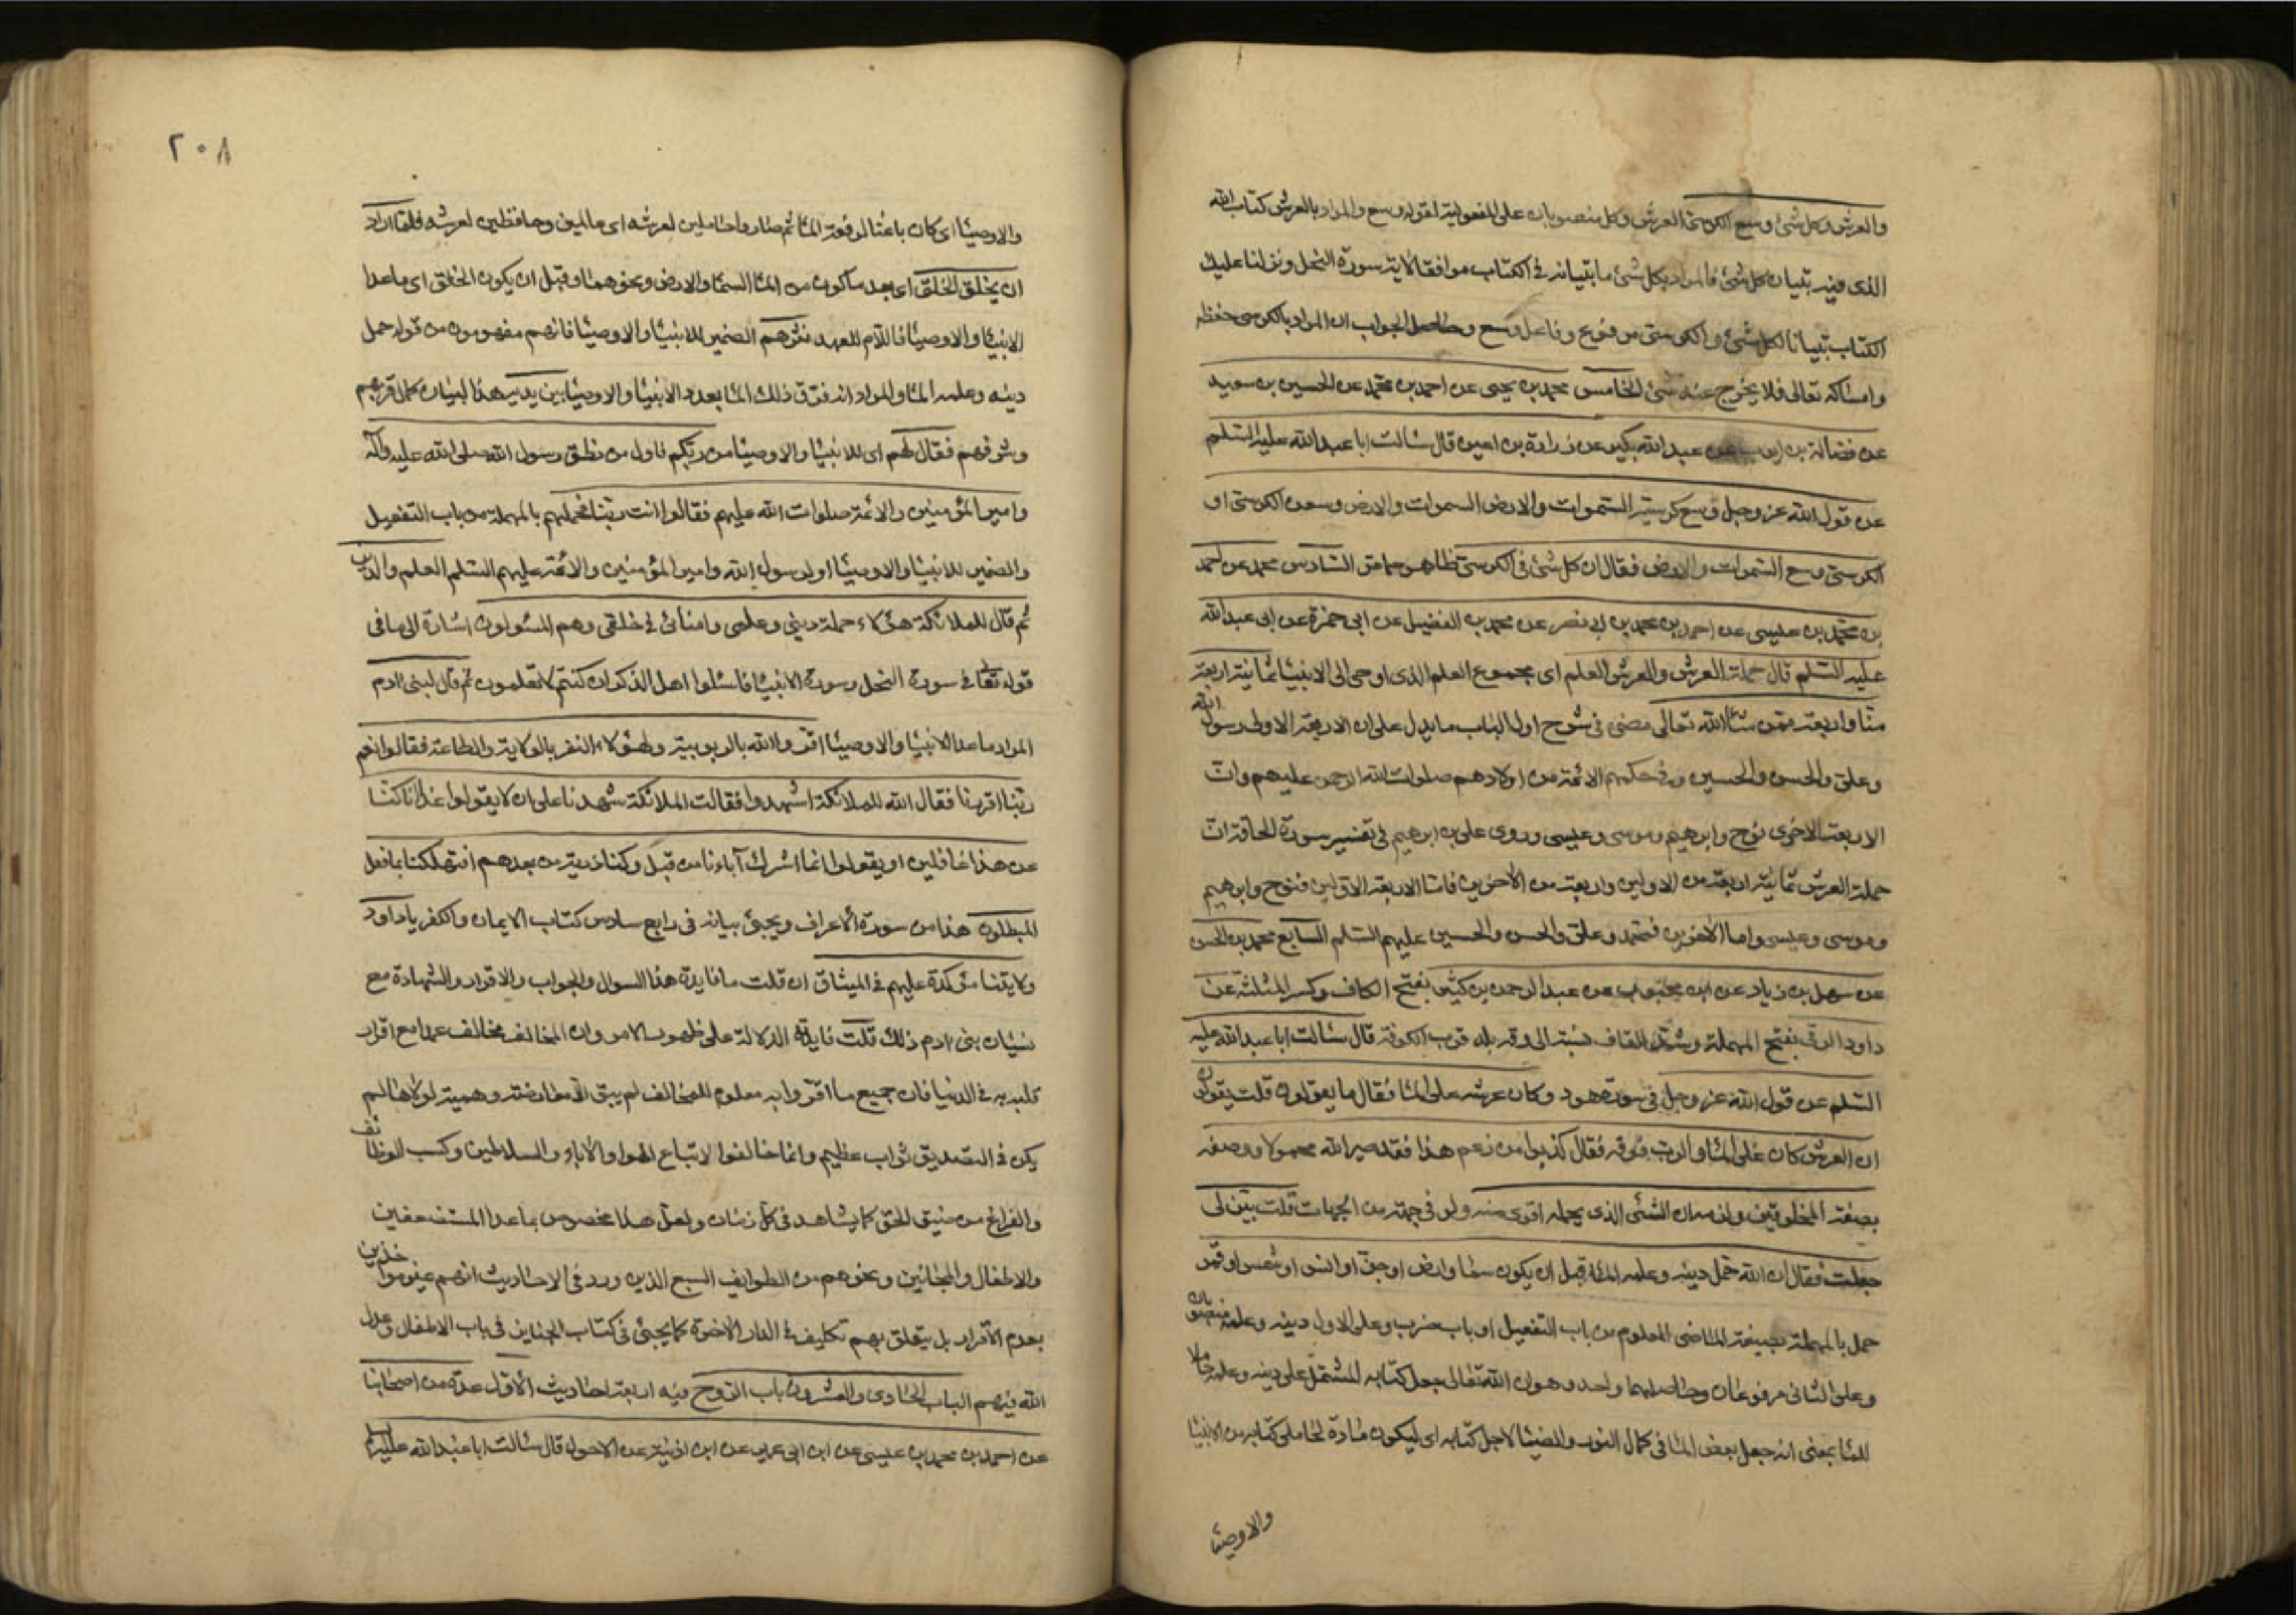 والعرش وكل شئ وسع الكرسي العرش وكل منصوبان على المفعولية لقوله وسع والمراد بالعرش كتاب الله
الذى فيه تبيان كل شئ فالمراد بكل شئ ما تبيانه فى الكتاب موافقا لاية سورة النحل ونزلنا عليك
الكتاب تبيانا لكل شئ والكرسي مرفوع وفاعل وسع وحاصل الجواب ان المراد بالكرسى حفظه
وامساكه تعالى فلا يخرج عنه شئ الخامس محمد بن يحيى عن احمد بن محمد عن الحسين بن سعيد
عن فضالة بن ايوب عن عبد الله بكير عن زرارة بن اعين قال سالت ابا عبد الله عليه السلم
عن قول الله عز وجل وسع كرسيه السموات والارض السموات والارض وسعن الكرسى او
الكرسى وسع السموات والارض فقال ان كل شئ فى الكرسى ظاهر مما مر السادس محمد عن احمد
بن محمد بن عيسى عن احمد بن محمد بن ابى نصر عن محمد بن الفضيل عن ابى حمزة عن ابى عبد الله
عليه السلم قال حملة العرش والعرش العلم اى مجموع العلم الذى اوحى الى الانبيا ثمانية اربعة
منا واربعة ممن شا الله تعالى مضى فى شرح اول الباب ما يدل على ان الاربعة الاولى رسول الله
وعلى والحسن والحسين وفى حكمهم الائمة من اولادهم صلوات الله الرحمن عليهم وان
الاربعة الاخرى نوح وابرهيم وموسى وعيسى وروى على بن ابرهيم فى تفسير سورة الحاقة ان
حملة العرش ثمانية اربعة من الاولين واربعة من الاخرين فاما الاربعة الاولين فنوح وابرهيم
وموسى وعيسى واما الاخرين فمحمد وعلى والحسن والحسين عليهم السلم السابع محمد بن الحسن
عن سهل بن زياد عن ابن محبوب عن عبد الرحمن بن كثير بفتح الكاف وكسر المثلثة عن
داود الرقى بفتح المهملة وشد القاف نسبة الى رقه بلد قرب الكوفة قال سالت ابا عبد الله عليه
السلم عن قول الله عز وجل فى سورة هود وكان عرشه على الما فقال ما يقولون قلت يقولون
ان العرش كان على الما والرب فوقه فقال كذبوا من زعم هذا فقد صير الله محمولا ووصفه
بصفة المخلوقين ولزمه ان الشئ الذى يحمله اقوى منه ولو فى جهة من الجهات قلت بين لى
جعلت فقال ان الله حمل دينه وعلمه الما قبل ان يكون سما وارض او جن او انس او شمس او قمر
حمل بالمهملة بصيغة الماضى المعلوم من باب التفعيل او باب ضرب وعلى الاول دينه وعلمه منصوبان
وعلى الثانى مرفوعان وحاصلهما واحد وهو ان الله تعالى جعل كتابه المشتمل على دينه وعلمه حاملا
للما بمعنى انه جعل بعض الما فى كمال النور والضيا لاجل كتابه اى ليكون مادة لحاملى كتابه من الانبيا
والاوصيا
٢٠٨
والاوصيا اى كان باعثا لوفور الما ثم صاروا حاملين لعرشه اى عالمين وحافظين لعرشه فلما اراد
ان يخلق الخلق اى بعد ما كون من الما السما والارض ونحوهما وقبل ان يكون الخلق اى ما عدا
الانبيا والاوصيا فاللام للعهد نثرهم الضمير للانبيا والاوصيا فانهم مفهومون من قوله حمل
دينه وعلمه الما والمراد انه فرق ذلك الما بعدد الانبيا والاوصيا بين يديه هذا لبيان كمال قربهم
وشرفهم فقال لهم اى للانبيا والاوصيا من ربكم فاول من نطق رسول الله صلى الله عليه واله
وامير المؤمنين والائمة صلوات الله عليهم فقالوا انت ربنا فحملهم بالمهملة من باب التفعيل
والضمير للانبيا والاوصيا او لرسول الله وامير المؤمنين والائمة عليهم السلم العلم والدين
ثم قال للملائكة هؤلاء حملة دينى وعلمى وامنائى فى خلقى وهم المسئولون اشارة الى ما فى
قوله تعالى فى سورة النحل وسورة الانبيا فاسئلوا اهل الذكر ان كنتم لا تعلمون ثم قال لبنى ادم
المراد ما عدا الانبيا والاوصيا اقروا لله بالربوبية ولهؤلاء النفر بالولاية والطاعة فقالوا نعم
ربنا اقررنا فقال الله للملائكة اشهدوا فقالت الملائكة شهدنا على ان لا يقولوا غدا انا كنا
عن هذا غافلين او يقولوا انما اشرك آباءنا من قبل وكنا ذرية من بعدهم افتهلكنا بما فعل
المبطلون هذا من سورة الاعراف ويجئ بيانه فى رابع سادس كتاب الايمان والكفر يا داود
ولايتنا مؤكدة عليهم فى الميثاق ان قلت ما فايدة هذا السوال والجواب والاقرار والشهادة مع
نسيان بنى ادم ذلك قلت فايدته الدلالة على ظهور الامر وان المخالف مخالف عمدا مع اقرار
قلبه به فى الدنيا فان جميع ما اقروا به معلوم للمخالف لم يبق الا معارضة وهمية لولاها لم
يكن فى التصديق ثواب عظيم وانما خالفوا لاتباع الهوا والاباء والسلاطين وكسب الوظائف
والفراغ من ضيق الحق كما يشاهد فى كل زمان ولعل هذا مخصوص بما عدا المستضعفين
والاطفال والمجانين ونحوهم من الطوايف السبع الذين ورد فى الاحاديث انهم غير مواخذين
بعدم الاقرار بل يتعلق بهم تكليف فى الدار الاخرة كما يجئ فى كتاب الجنايز فى باب الاطفال وعدل
الله فيهم الباب الحادى والعشرون باب الروح فيه اربعة احاديث الاول عدة من اصحابنا
عن احمد بن محمد بن عيسى عن ابن ابى عمير عن ابن اذينة عن الاحول قال سالت ابا عبد الله عليه السلم